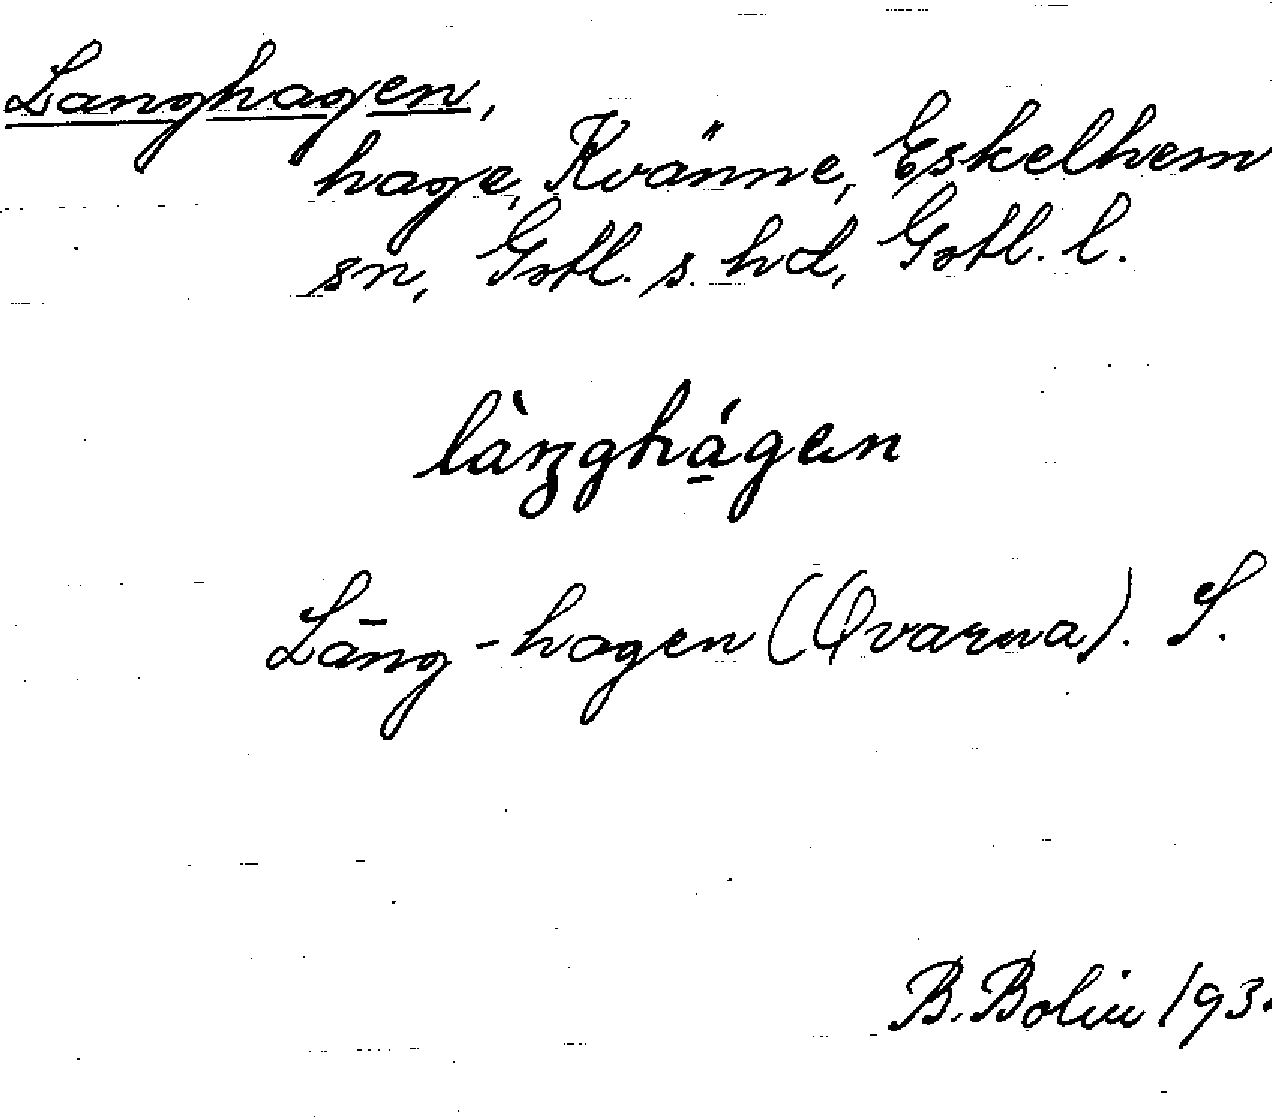 Langhagen,
hage, Kvänne, Eskelhem
sn, Gotl. s. hd, Gotl. l.
làŋghágen
Lāng-hagen (Qvarna). S.
B. Bolin 193